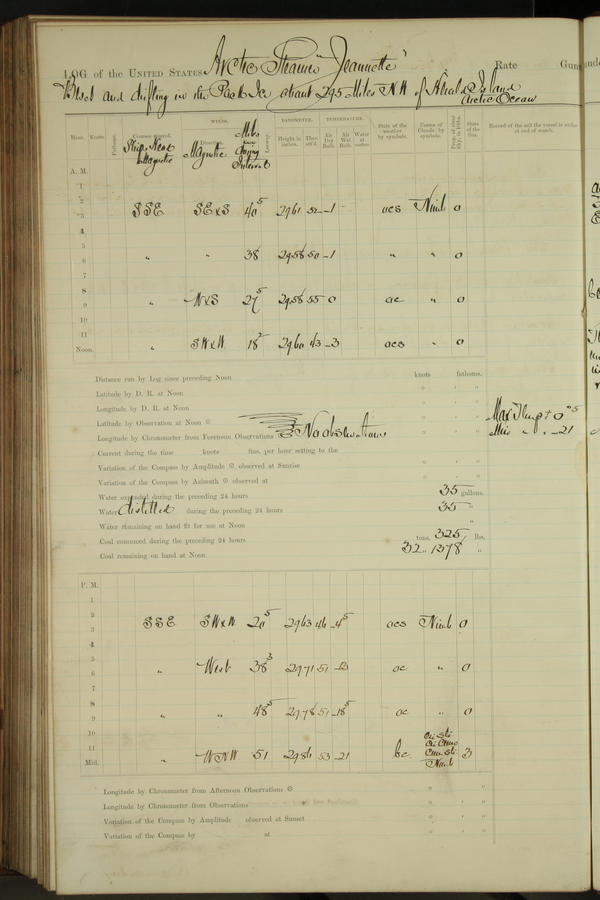 LOG of the UNITED STATES Arctic Steamer "Jeannette" Rate Guns
Beset and drifting in the Pack Ice about 295 Miles N.W. of Herald Island
Arctic Ocean
WINDS. BAROMETER. TEMPERATURE.
Hour. Knots. Fathoms. Courses steered. Direction. Leeway. Height in inches. Ther. att'd. Air Dry Bulb. Air Wet Bulb. Water at surface. State of the weather by symbols. Forms of Clouds by symbols. State of the Sea. Record of the sail the vessel is under at end of watch.
Ship's Head Magnetic Magnetic Miles during Interval
A. M.
1
2
3 SSE SExS 40⁵ 2961 52 -1 ocs Nimb 0
4
5
6 " " 38 2958 50 -1 " " 0
7
8
9 " WxS 27⁵ 2958 55 0 oc " 0
10
11
Noon. " SWxW 18² 2960 43 -3 ocs " 0
Distance run by Log since preceding Noon knots fathoms.
Latitude by D. R. at Noon ° ' "
Longitude by D. R. at Noon ° ' " Max Temp + 0⁵
Latitude by Observation at Noon ° ' " Min " " -21
Longitude by Chronometer from Forenoon Observations No observations
Current during the time knots fms. per hour setting to the
Variation of the Compass by Amplitude observed at Sunrise ° ' "
Variation of the Compass by Azimuth observed at ° ' "
Water expended during the preceding 24 hours 35 gallons.
Water distilled during the preceding 24 hours 35 "
Water remaining on hand fit for use at Noon "
Coal consumed during the preceding 24 hours tons, 325 lbs.
Coal remaining on hand at Noon 32 " 1378 "
P. M.
1
2
3 SSE SWxW 20⁵ 2963 46 -4⁵ ocs Nimb 0
4
5
6 " West 38³ 2971 51 -13 oc " 0
7
8
9 " " 48⁵ 2978 51 -18⁵ oc " 0
10 Cir Sti
11 Cir Cum
Mid. " WNW 51 2986 53 -21 bc Cum Sti 3
Nimb
Longitude by Chronometer from Afternoon Observations ° ' "
Longitude by Chronometer from Observations ° ' "
Variation of the Compass by Amplitude observed at Sunset ° ' "
Variation of the Compass by at ° ' "